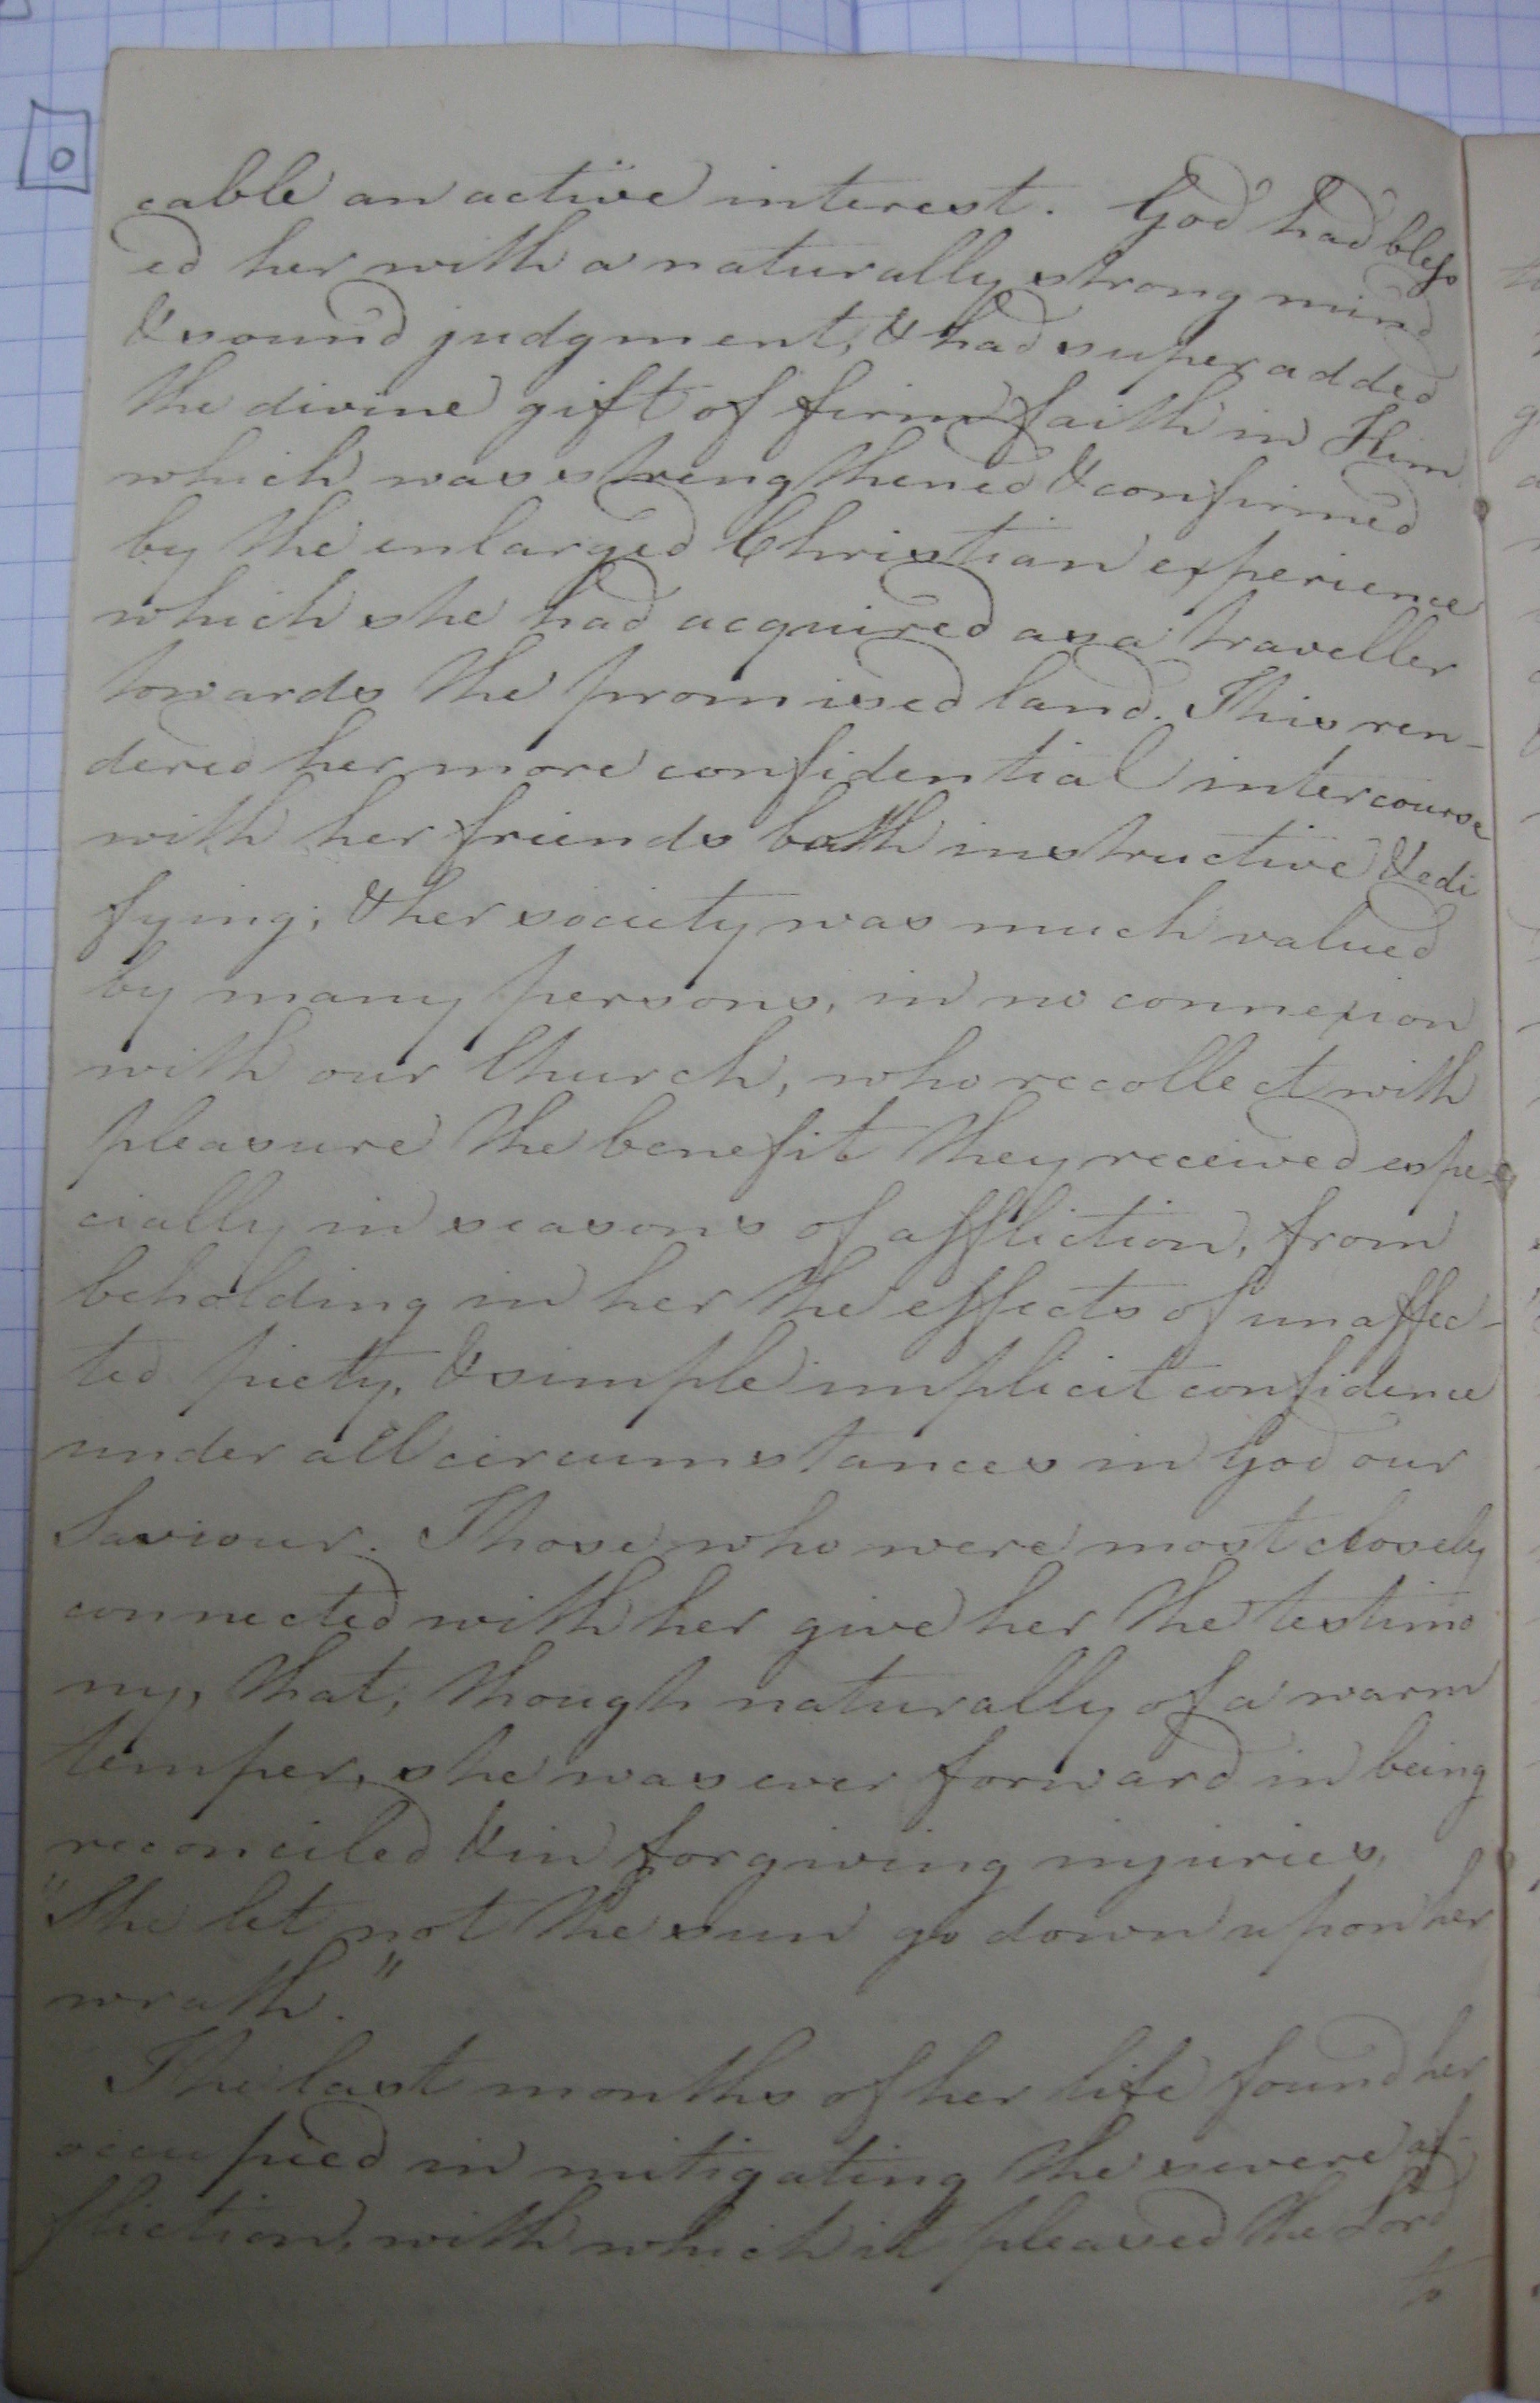 0
cable an active interest. God had bless
ed her with a naturally strong mind
& sound judgment, & had superadded
the divine gift of firm faith in Him
which was strengthened & confirmed
by the enlarged Christian experience
which she had acquired as a traveller
towards the promised land. This ren-
dered her more confidential intercourse
with her friends both instructive & edi
fying; & her society was much valued
by many persons, in no connexion
with our Church, who recollect with
pleasure the benefit they received espe-
cially in seasons of affliction, from
beholding in her the effects of unaffec-
ted piety, & simple implicit confidence
under all circumstances in God our
Saviour. Those who were most closely
connected with her give her the testimo
ny, that, though naturally of a warm
temper, she was ever forward in being
reconciled & in forgiving injuries,
"She let not the sun go down upon her
wrath."
The last months of her life found her
occupied in mitigating the severe af-
fliction, with which it pleased the Lord
to